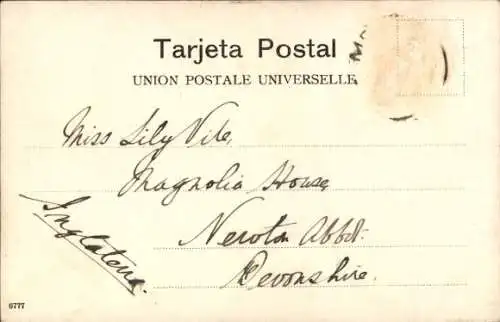 Tarjeta Postal
UNION POSTALE UNIVERSELLE
Miss Lily Vile,
Magnolia House,
Newton Abbot.
Devonshire.
Inglaterra.
6777